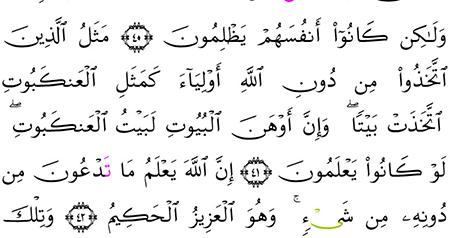 وَلَٰكِن كَانُوٓا۟ أَنفُسَهُمْ يَظْلِمُونَ ﴿٤٠﴾ مَثَلُ ٱلَّذِينَ
ٱتَّخَذُوا۟ مِن دُونِ ٱللَّهِ أَوْلِيَآءَ كَمَثَلِ ٱلْعَنكَبُوتِ
ٱتَّخَذَتْ بَيْتًا ۖ وَإِنَّ أَوْهَنَ ٱلْبُيُوتِ لَبَيْتُ ٱلْعَنكَبُوتِ ۖ
لَوْ كَانُوا۟ يَعْلَمُونَ ﴿٤١﴾ إِنَّ ٱللَّهَ يَعْلَمُ مَا تَدْعُونَ مِن
دُونِهِۦ مِن شَىْءٍ ۚ وَهُوَ ٱلْعَزِيزُ ٱلْحَكِيمُ ﴿٤٢﴾ وَتِلْكَ